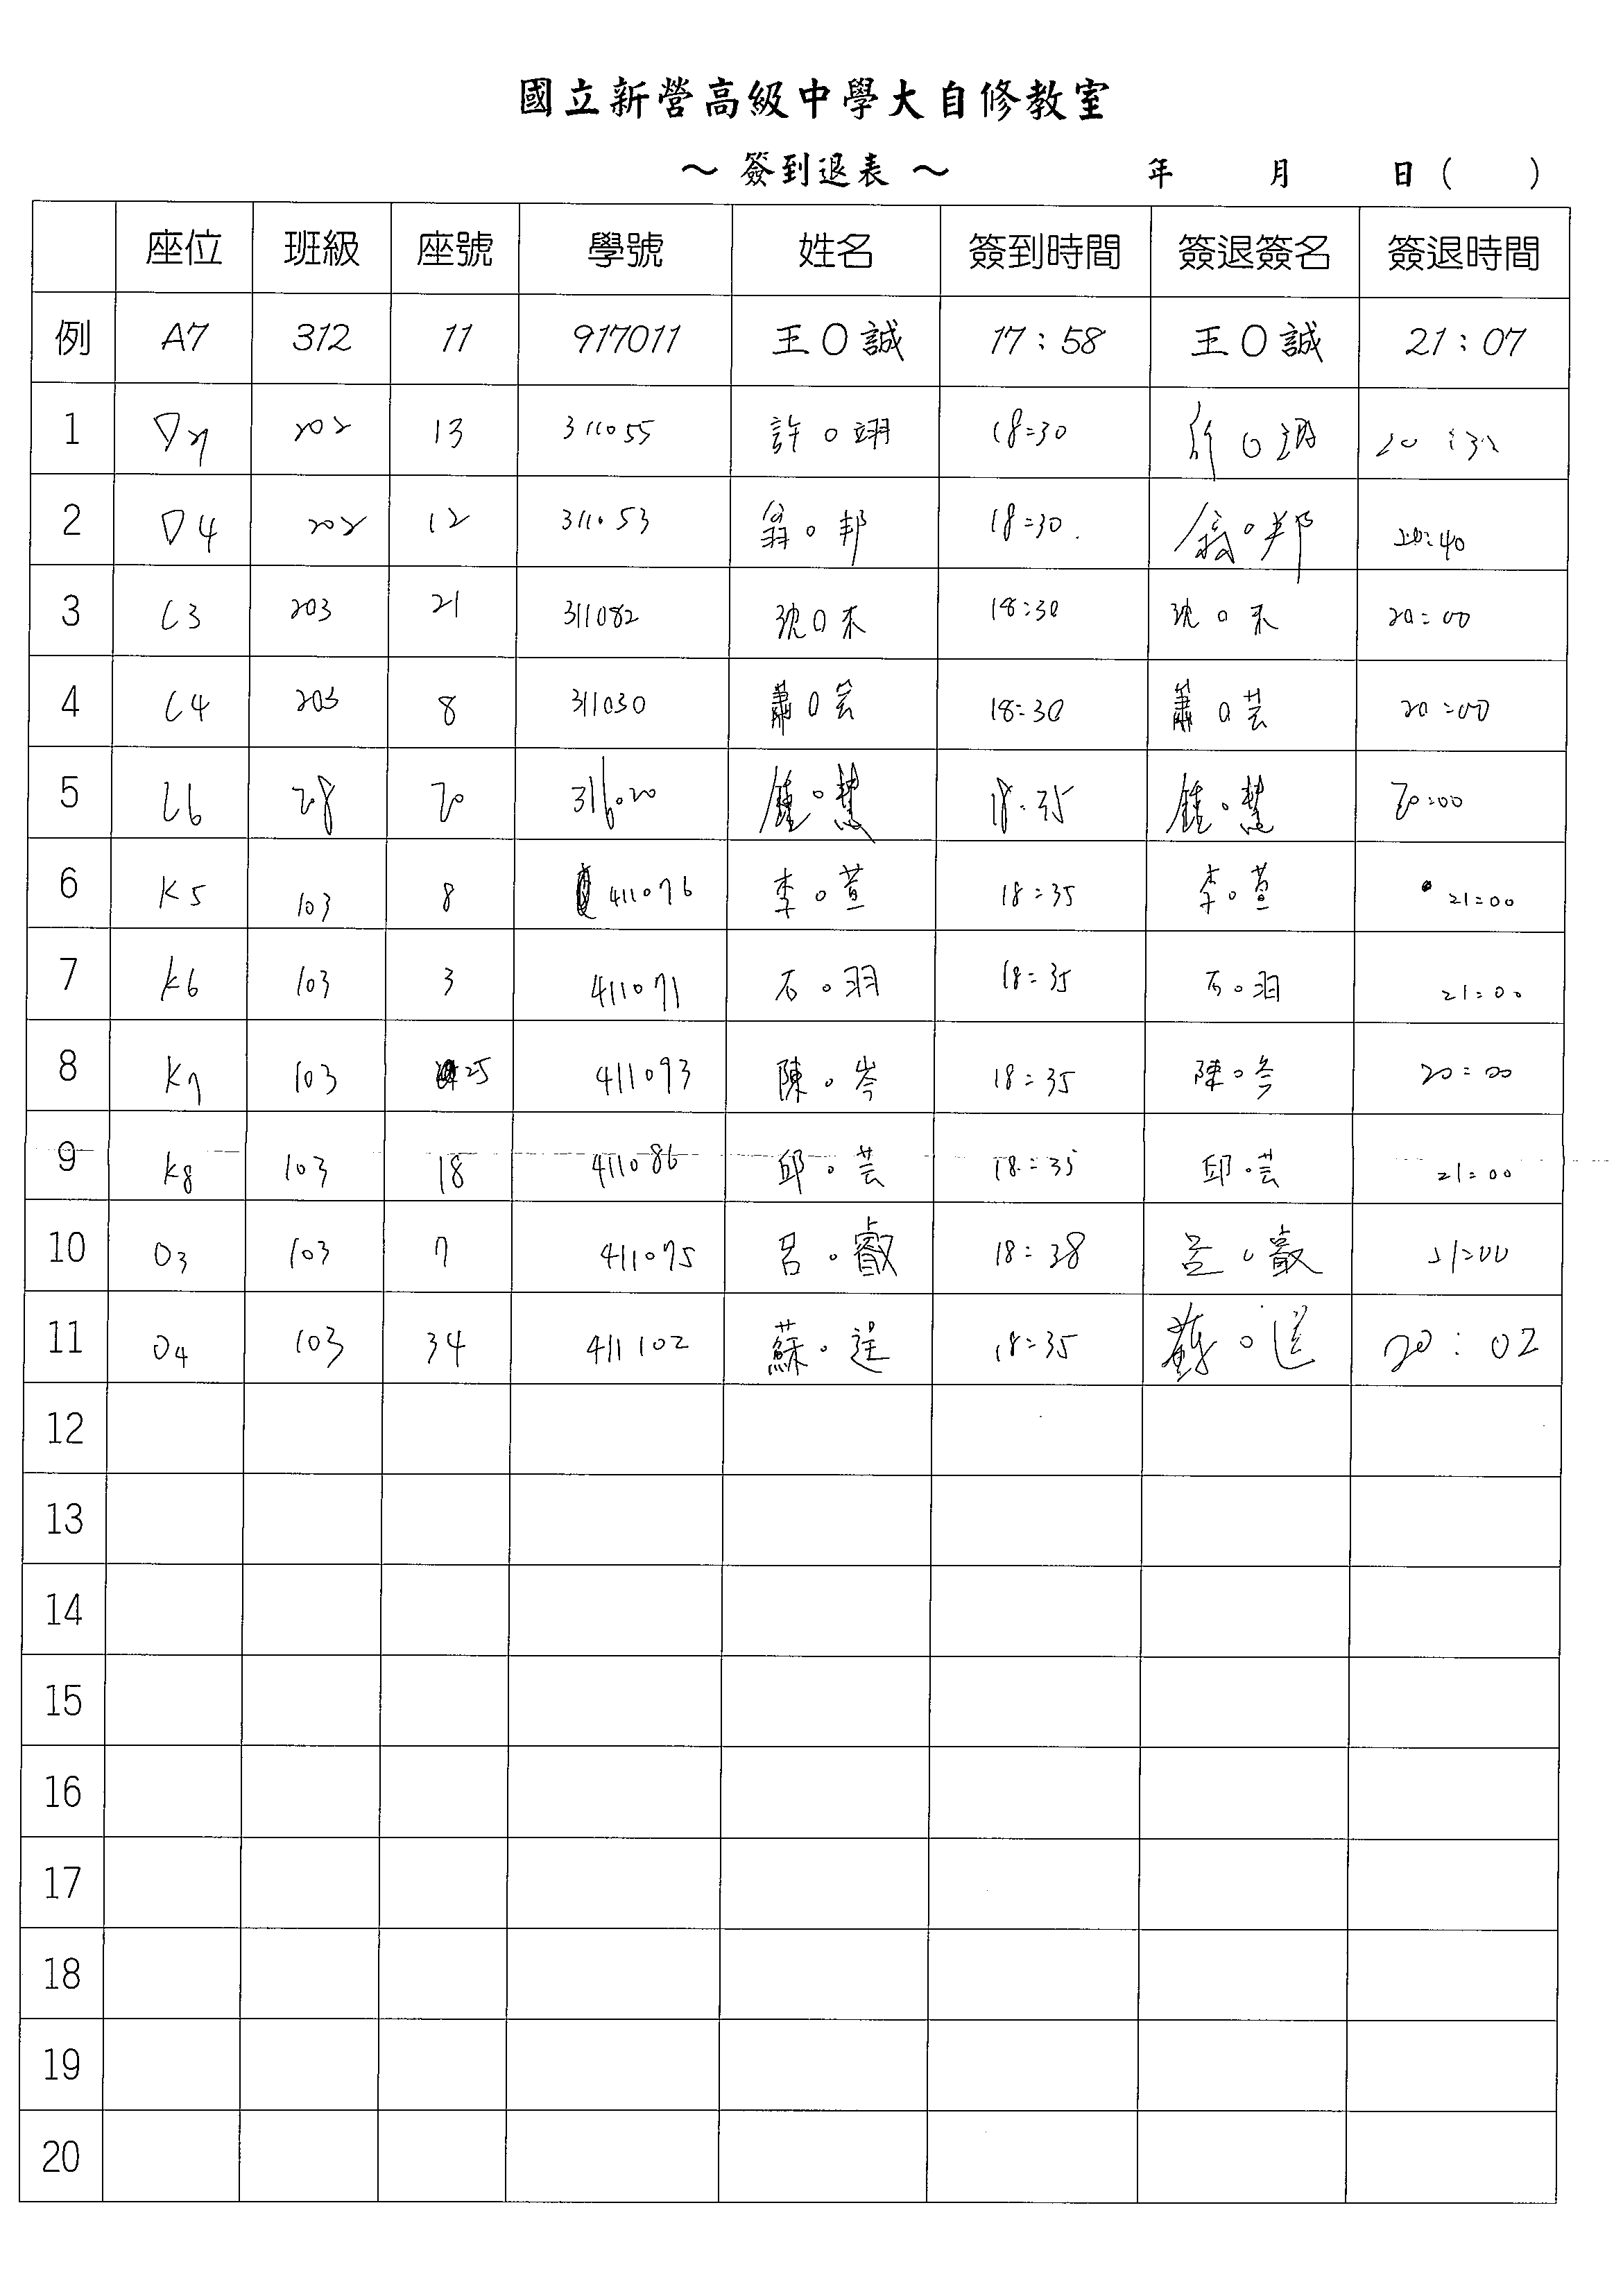 國立新營高級中學大自修教室
～ 簽到退表 ～ 年 月 日( )
座位 班級 座號 學號 姓名 簽到時間 簽退簽名 簽退時間
例 A7 312 11 917011 王O誠 17:58 王O誠 21:07
1 D7 202 13 311055 許O翊 18:30 許O翊
2 D4 202 12 311053 翁O邦 18:30 翁O邦 20:40
3 C3 203 21 311082 沈O禾 18:30 沈O禾 20:00
4 C4 203 8 311030 蕭O芸 18:30 蕭O芸 20:00
5 C6 208 20 316020 鍾O慧 18:35 鍾O慧 20:00
6 K5 103 8 411076 李O萱 18:35 李O萱 21:00
7 K6 103 3 411071 石O羽 18:35 石O羽 21:00
8 K7 103 25 411093 陳O岑 18:35 陳O岑 20:00
9 K8 103 18 411086 邱O芸 18:35 邱O芸 21:00
10 O3 103 7 411075 呂O叡 18:38 呂O叡 21:00
11 O4 103 34 411102 蘇O逞 18:35 蘇O逞 20:02
12
13
14
15
16
17
18
19
20